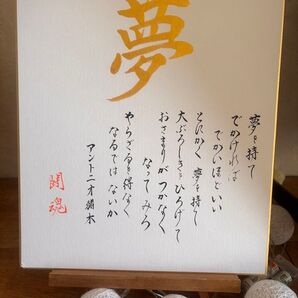 夢
夢を持て
でかければ
でかいほどいい
とにかく夢を持て
大ぶろしきをひろげて
おさまりがつかなく
なってみろ
やらざるを得なく
なるではないか
アントニオ猪木
闘魂